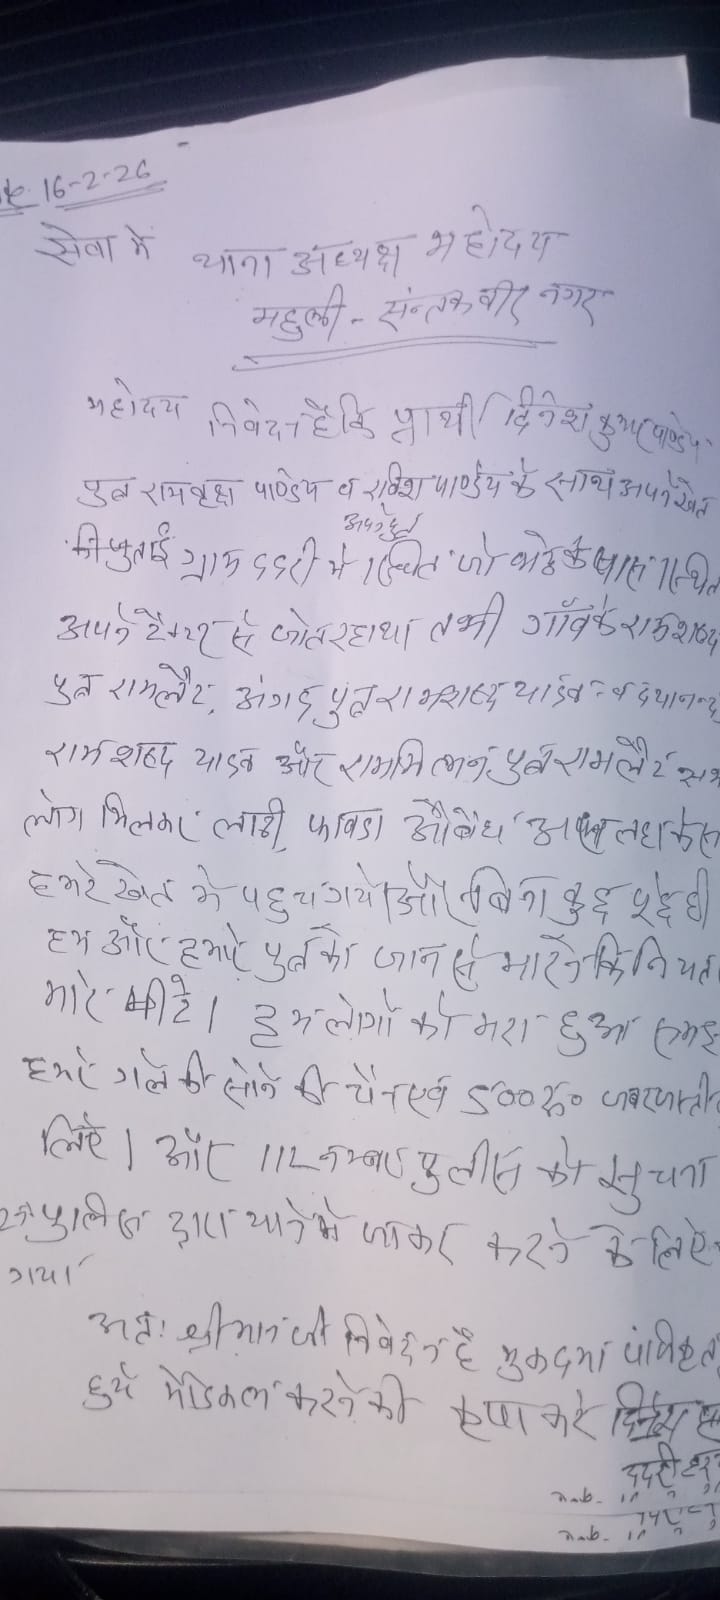 16-2-26
सेवा में थाना अध्यक्ष महोदय
महुली - संन्तकबीर नगर
महोदय निवेदन है कि प्रार्थी दिनेश कुमार पाण्डेय
पुत्र रामबृक्ष पाण्डेय व रविश पाण्डेय के साथ अपने खेत
अपने पुत्र
कि जुताई ग्राम ददरी में स्थित जो भठ्ठे के पास स्थित
अपने टैक्टर से जोत रहा था तभी गाँव के रामशब्द
पुत्र रामलौट, अंगद पुत्र रामशब्द यादव व दयानन्द
रामशब्द यादव और राममिलन पुत्र रामलौट सभ
लोग मिलकर लाठी, फावडा औ बैध
हमारे खेत में पहुच गये और बिना कुछ पूछे ही
हम और हमारे पुत्र को जान से मारने कि नियत
मारे पीटे। हम लोगों को मरा हुआ समझ
हमारे गले की सोने की चैन एवं 500 रू० जबरजस्ती
लिए। और 112 नम्बर पुलीस को सुचना
पुलिस द्वारा थाने में जाकर करने के लिए
गया
अतः श्रीमान जी निवेदन है मुकदमा पंजिकृत
हुये मेडिकल करने की कृपा करे दिनेश
ददरी
mob-
mob-